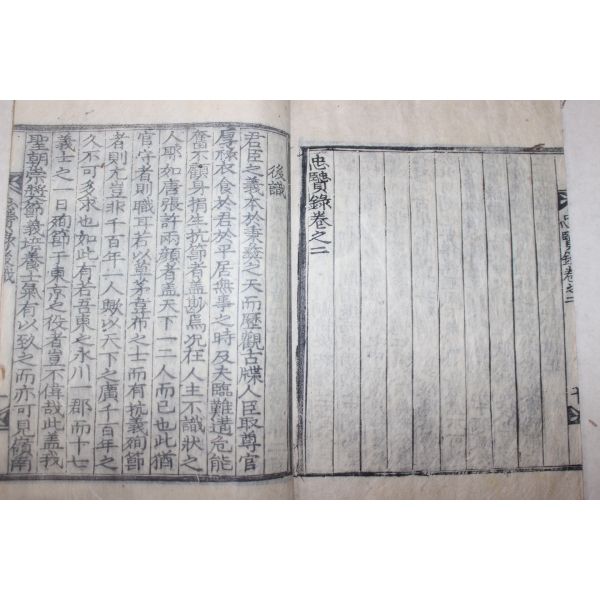 忠賢錄卷之二
後識
君臣之義本於秉彝之天而歷觀古牒人臣取尊官
厚祿衣食於君於平居無事之時及夫臨難遭危能
奮不顧身捐生抗節者盖尠焉況在人主不識狀之
人耶如唐張許兩顔者盖天下一二人而已也此猶
官守者則職耳若以草茅韋布之士而有抗義殉節
者則尤豈非千百年一人歟以天下之廣千百年之
久不可多求也如此有若吾東之永川一郡而十七
義士之一日殉節于東京之役者豈不偉哉此盖我
聖朝崇奬節義培養士氣有以致之而亦可見嶺南
忠賢錄卷之二